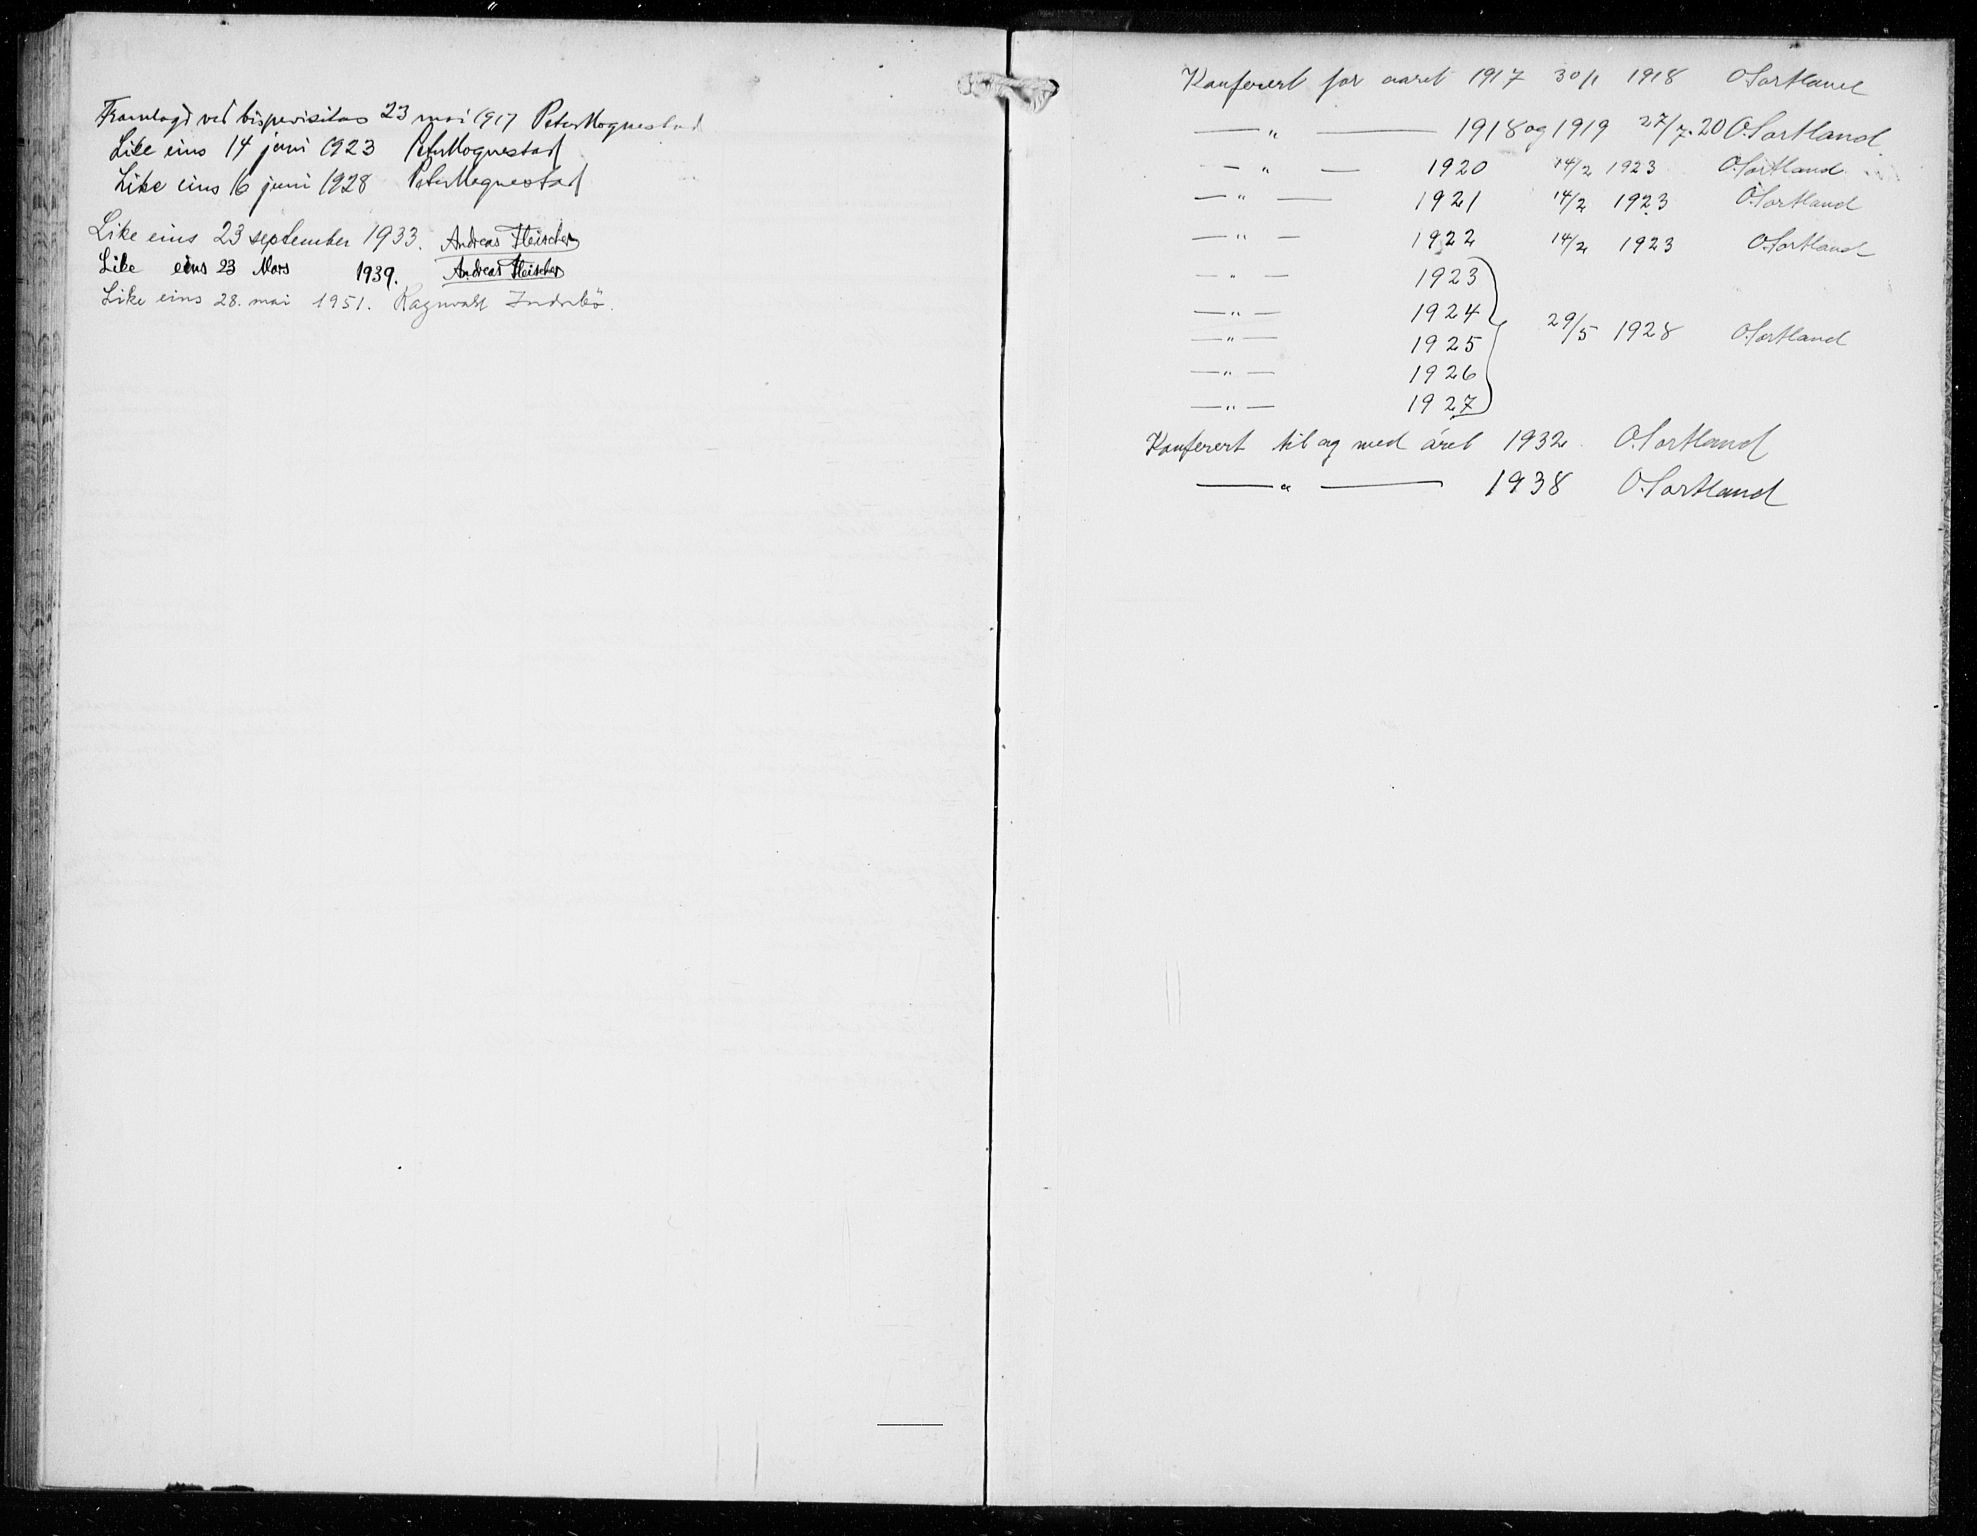 Framlagd ved bispevisitas 23 mai 1917 Peter Hognestad
Like eins 14 juni 1923 Peter Hognestad
Like eins 16 juni 1928 Peter Hognestad
Like eins 23 september 1933. Andreas Fleischer
Like eins 23 Mars 1939. Andreas Fleischer
Like eins 28. mai 1951. Ragnvald Indrebö.
Konferert for aaret 1917 30/1 1918 O. Sortland
—„— 1918 og 1919 27/7. 20 O. Sortland
—„— 1920 14/2 1923 O. Sortland
—„— 1921 14/2 1923 O. Sortland
—„— 1922 14/2 1923 O. Sortland
—„— 1923
—„— 1924
—„— 1925 29/5 1928 O. Sortland
—„— 1926
—„— 1927
Konferert til og med året 1932 O. Sortland
—„— 1938 O. Sortland